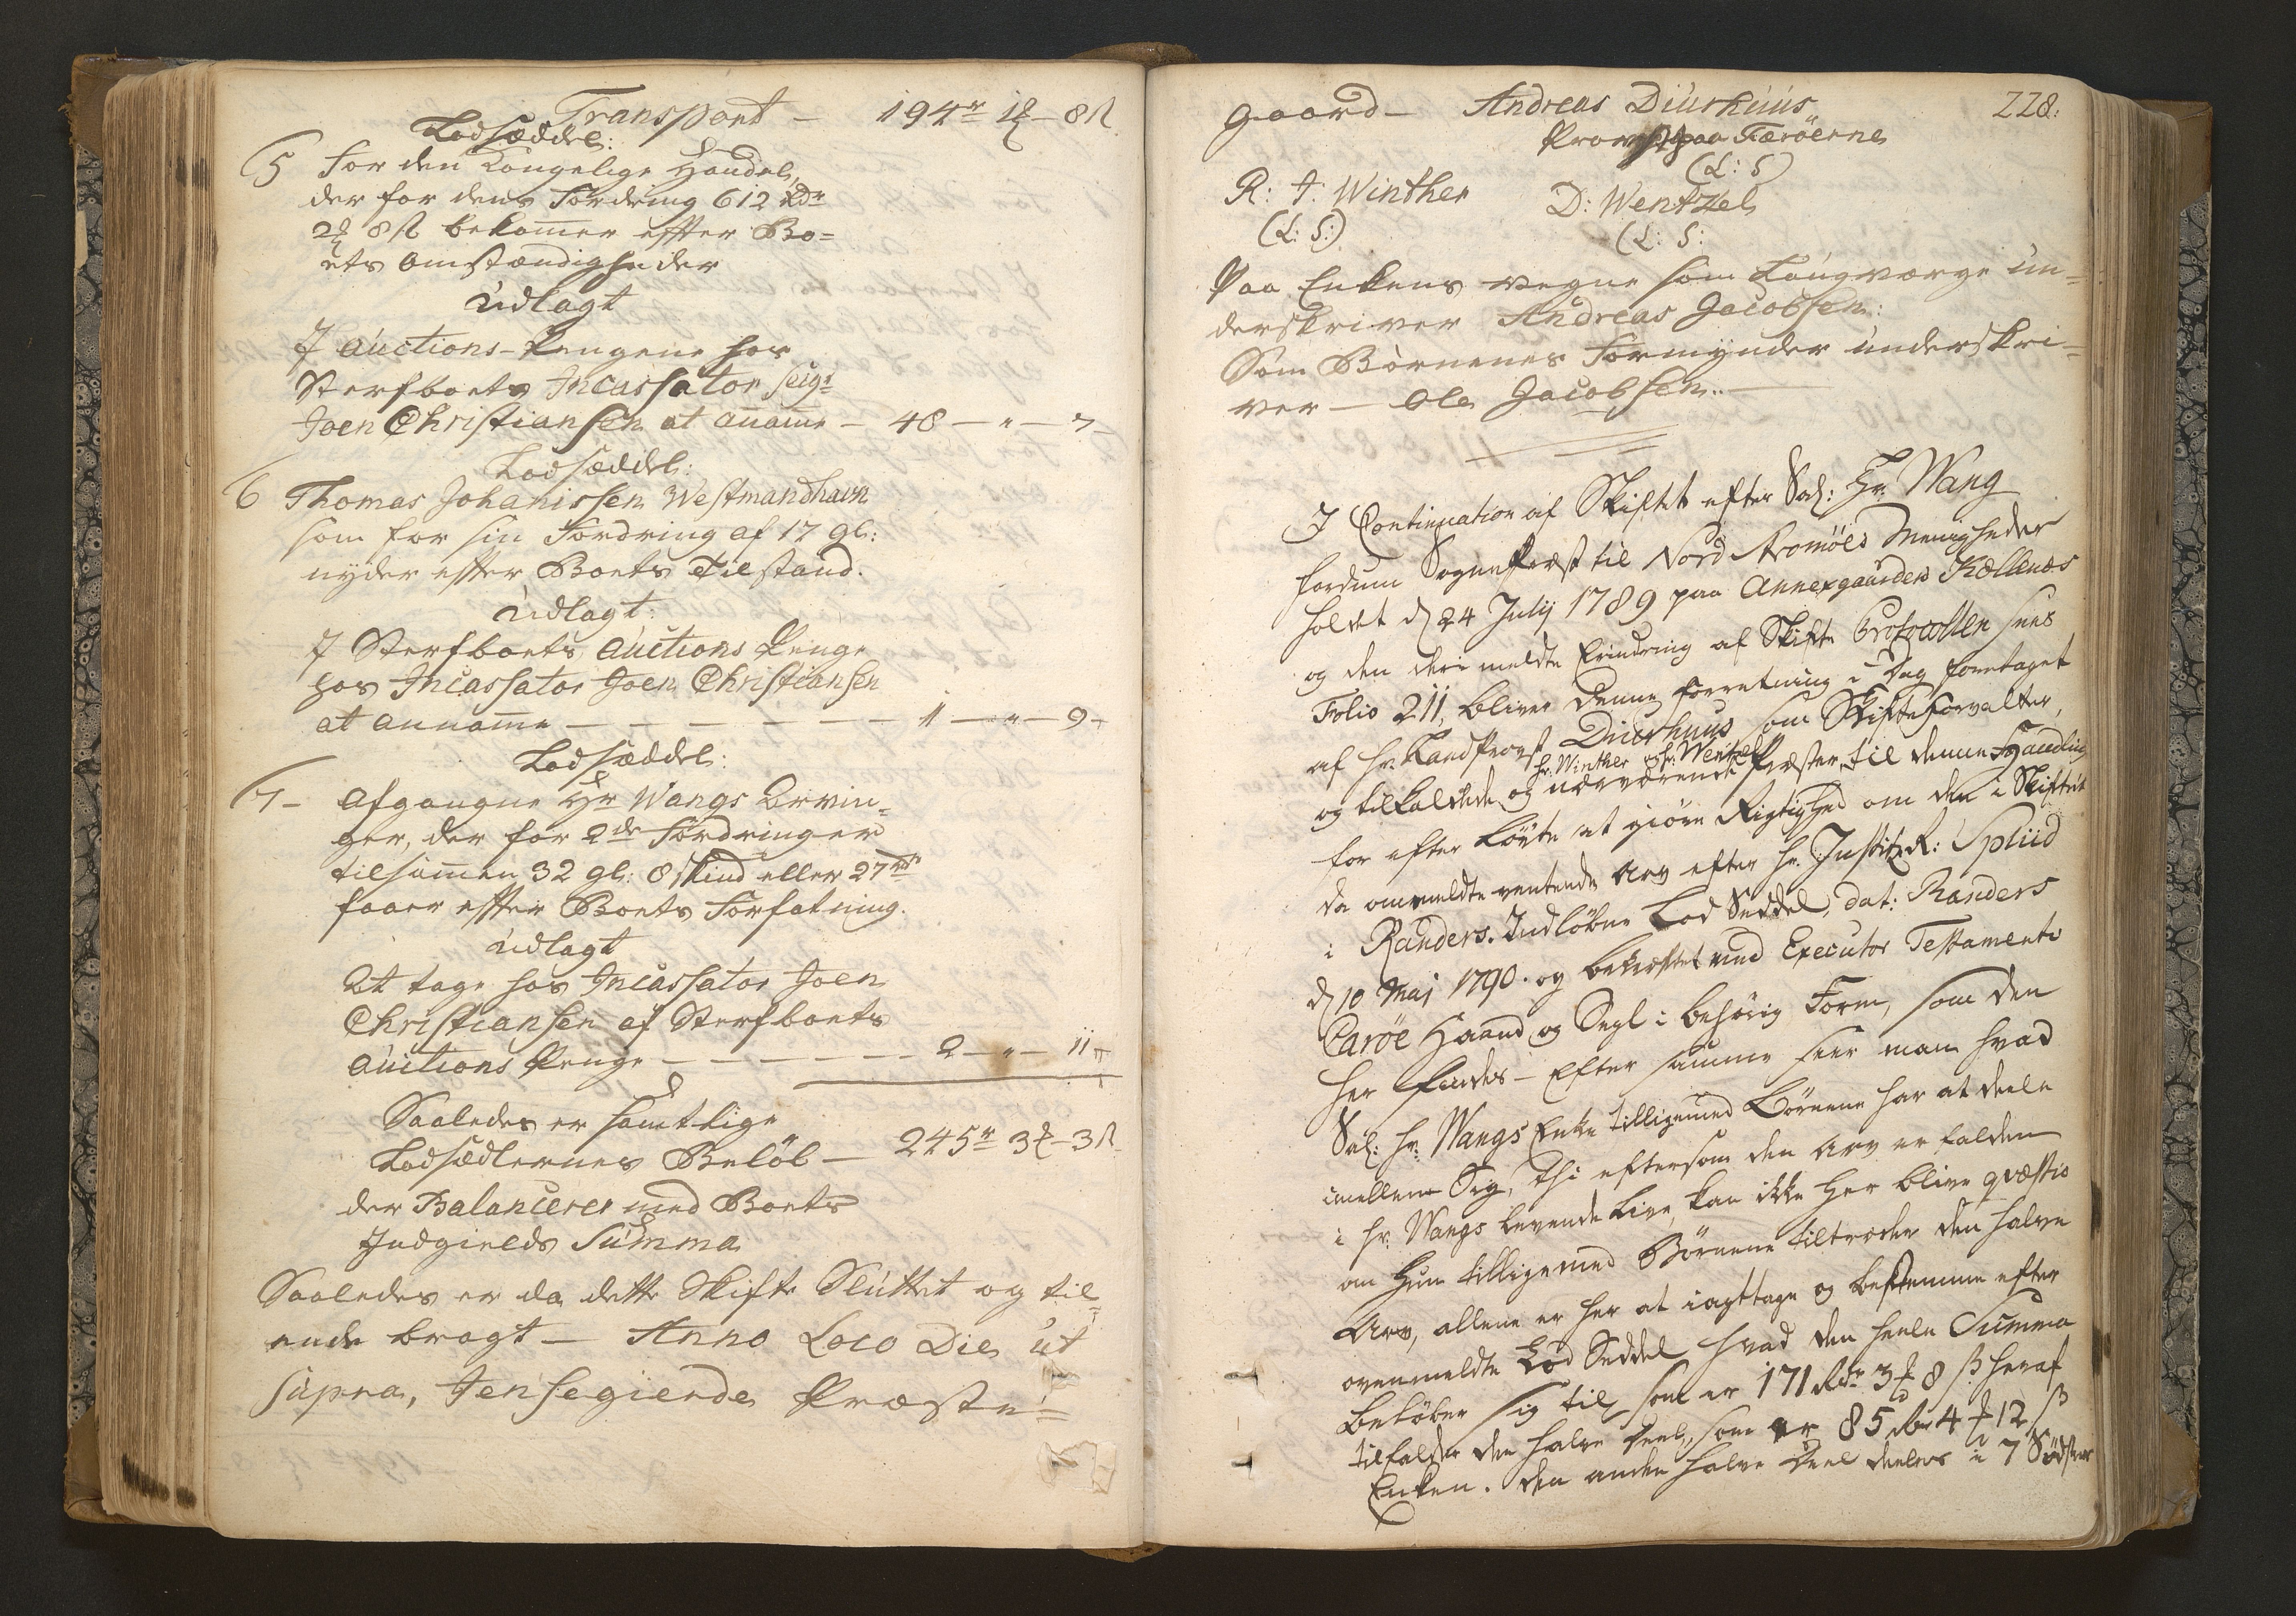 Transport - 194 r 1 ₰ - 8 ß
Lodsæddel:
5 For den Kongelige Handel,
der for dens Fordring 612 Rdr
2 ₰ 8 ß bekommer effter Bo=
ets Omstændigheder
Udlagt
I Auctions-Pengene hos
Sterfboets Incassator seigr
Joen Christiansen at anamme - 48 - " - 7 -
Lodsæddel:
6 Thomas Johanissen Westmandhavn
som for sin Fordring af 17 gl:
nyder effter Boets Tilstand.
Udlagt:
I Sterfboets Auctions Penge
hos Incassator Joen Christiansen
at annamme - - - - - - 1 - " - 9 -
Lodsæddel:
7 - Afgangne Hr Wangs Arvin=
ger, der for 2de Fordringer
tilsammen 32 gl: 8 skind eller 27 rdr
faaer effter Boets Forfatning.
Udlagt
At tage hos Incassator Joen
Christiansen af Sterfboets
Auctions Penge - - - - - - 2 - " - 11 -
Saaledes er samtlige
Lodsædlernes Beløb - 245 r 3 ₰ - 3 ß
der Balancerer med Boets
Indgields Summa
Saaledes er da dette Skifte Sluttet og til
ende bragt - Anno Loco Die ut
supra, Præste=
228.
gaard - Andreas Diurhuus
Provst paa Færöerne
(L: S)
R: J: Winther D: Wentzel
(L: S:) (L: S:
Paa Enkens vegne som Laugværge un=
derskriver Andreas Jacobsen:
Som Börnenes Formynder underskri=
ver - Ole Jacobsen. -
I Continuation af Skiftet efter Sal: Hr. Wang
fordum Sognepræst til Nord Strömöes Menigheder
holdet d 24 July 1789 paa Annexgaarden Kollenæs
og den deri meldte Erindring af Skifte Protocollen sees
Folio 211, bliver denne Forretning i Dag foretaget
af Hr. Landprovst Diurhuus som Skifteforvalter,
hr: Winther og hr: Wentzel
og tilkaldede og nærværende Præster til denne Handling
for efter Löfte at giöre Rigtighed om den i Skiftet
da ommeldte ventende Arv efter Hr. Justitz R: Spliid
i Randers. Indlöbne Lod Seddel, dat: Randers
d 10 Maj 1790. og bekræftet med Executor Testamenti
Caröe Haand og Segl i behörig Form, som den
her findes - Efter samme seer man hvad
Sal: hr: Wangs Enke tilligemed Börnene har at deele
imellem Sig, thi eftersom den Arv er falden
i hr: Wangs levende Live, kan ikke her blive qvæstio
om Hun tilligemed Börnene tiltræder den halve
Arv, allene er her at iagttage og bestemme efter
ovenmeldte Lod Seddel hvad den heele Summa
belöber sig til som er 171 Rdr 3 ₰ 8 ß heraf
tilfalder den halve Deel, som er 85 Rdr 4 ₰ 12 ß
Enken. Den anden halve Deel deeles i 7 Södskende